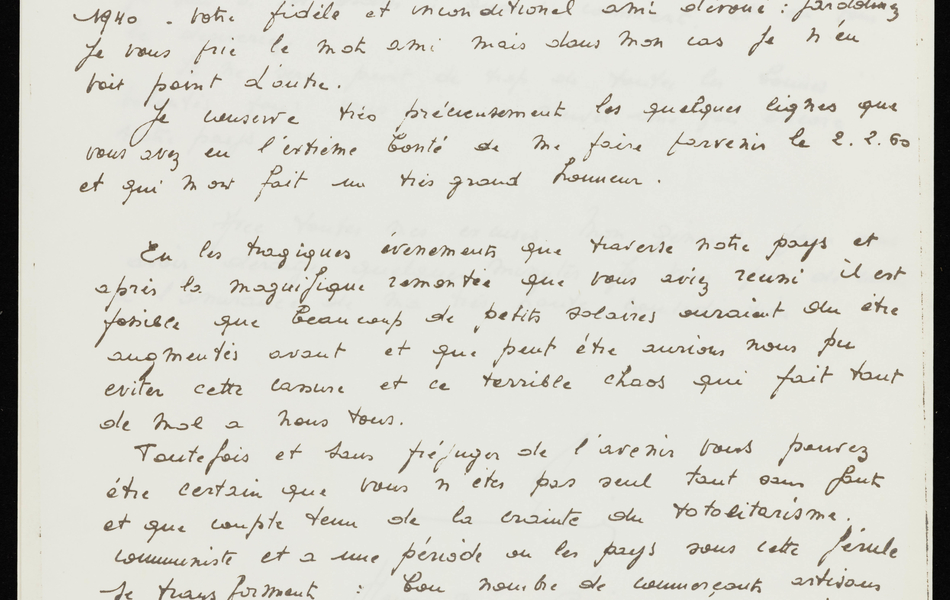 1940. votre fidèle et inconditionel ami dévoué : pardonnez
Je vous prie le mot ami mais dans mon cas Je n'en
voit point d'autre.
Je conserve très précieusement les quelques lignes que
vous avez eu l'extrème bonté de me faire parvenir le 2.2.60
et qui m'ont fait un très grand honneur.
En les tragiques évenements que traverse notre pays et
après la magnifique remontée que vous aviez reussi il est
possible que beaucoup de petits salaires auraient du être
augmentés avant et que peut être aurions nous pu
eviter cette cassure et ce terrible chaos qui fait tant
de mal a nous tous.
Toutefois et sans préjuger de l'avenir vous pouvez
être certain que vous n'êtes pas seul tant sans faut
et que compte tenu de la crainte du totalitarisme.
communiste et a une période ou les pays sous cette férule
se transforment : bon nombre de commerçants artisans